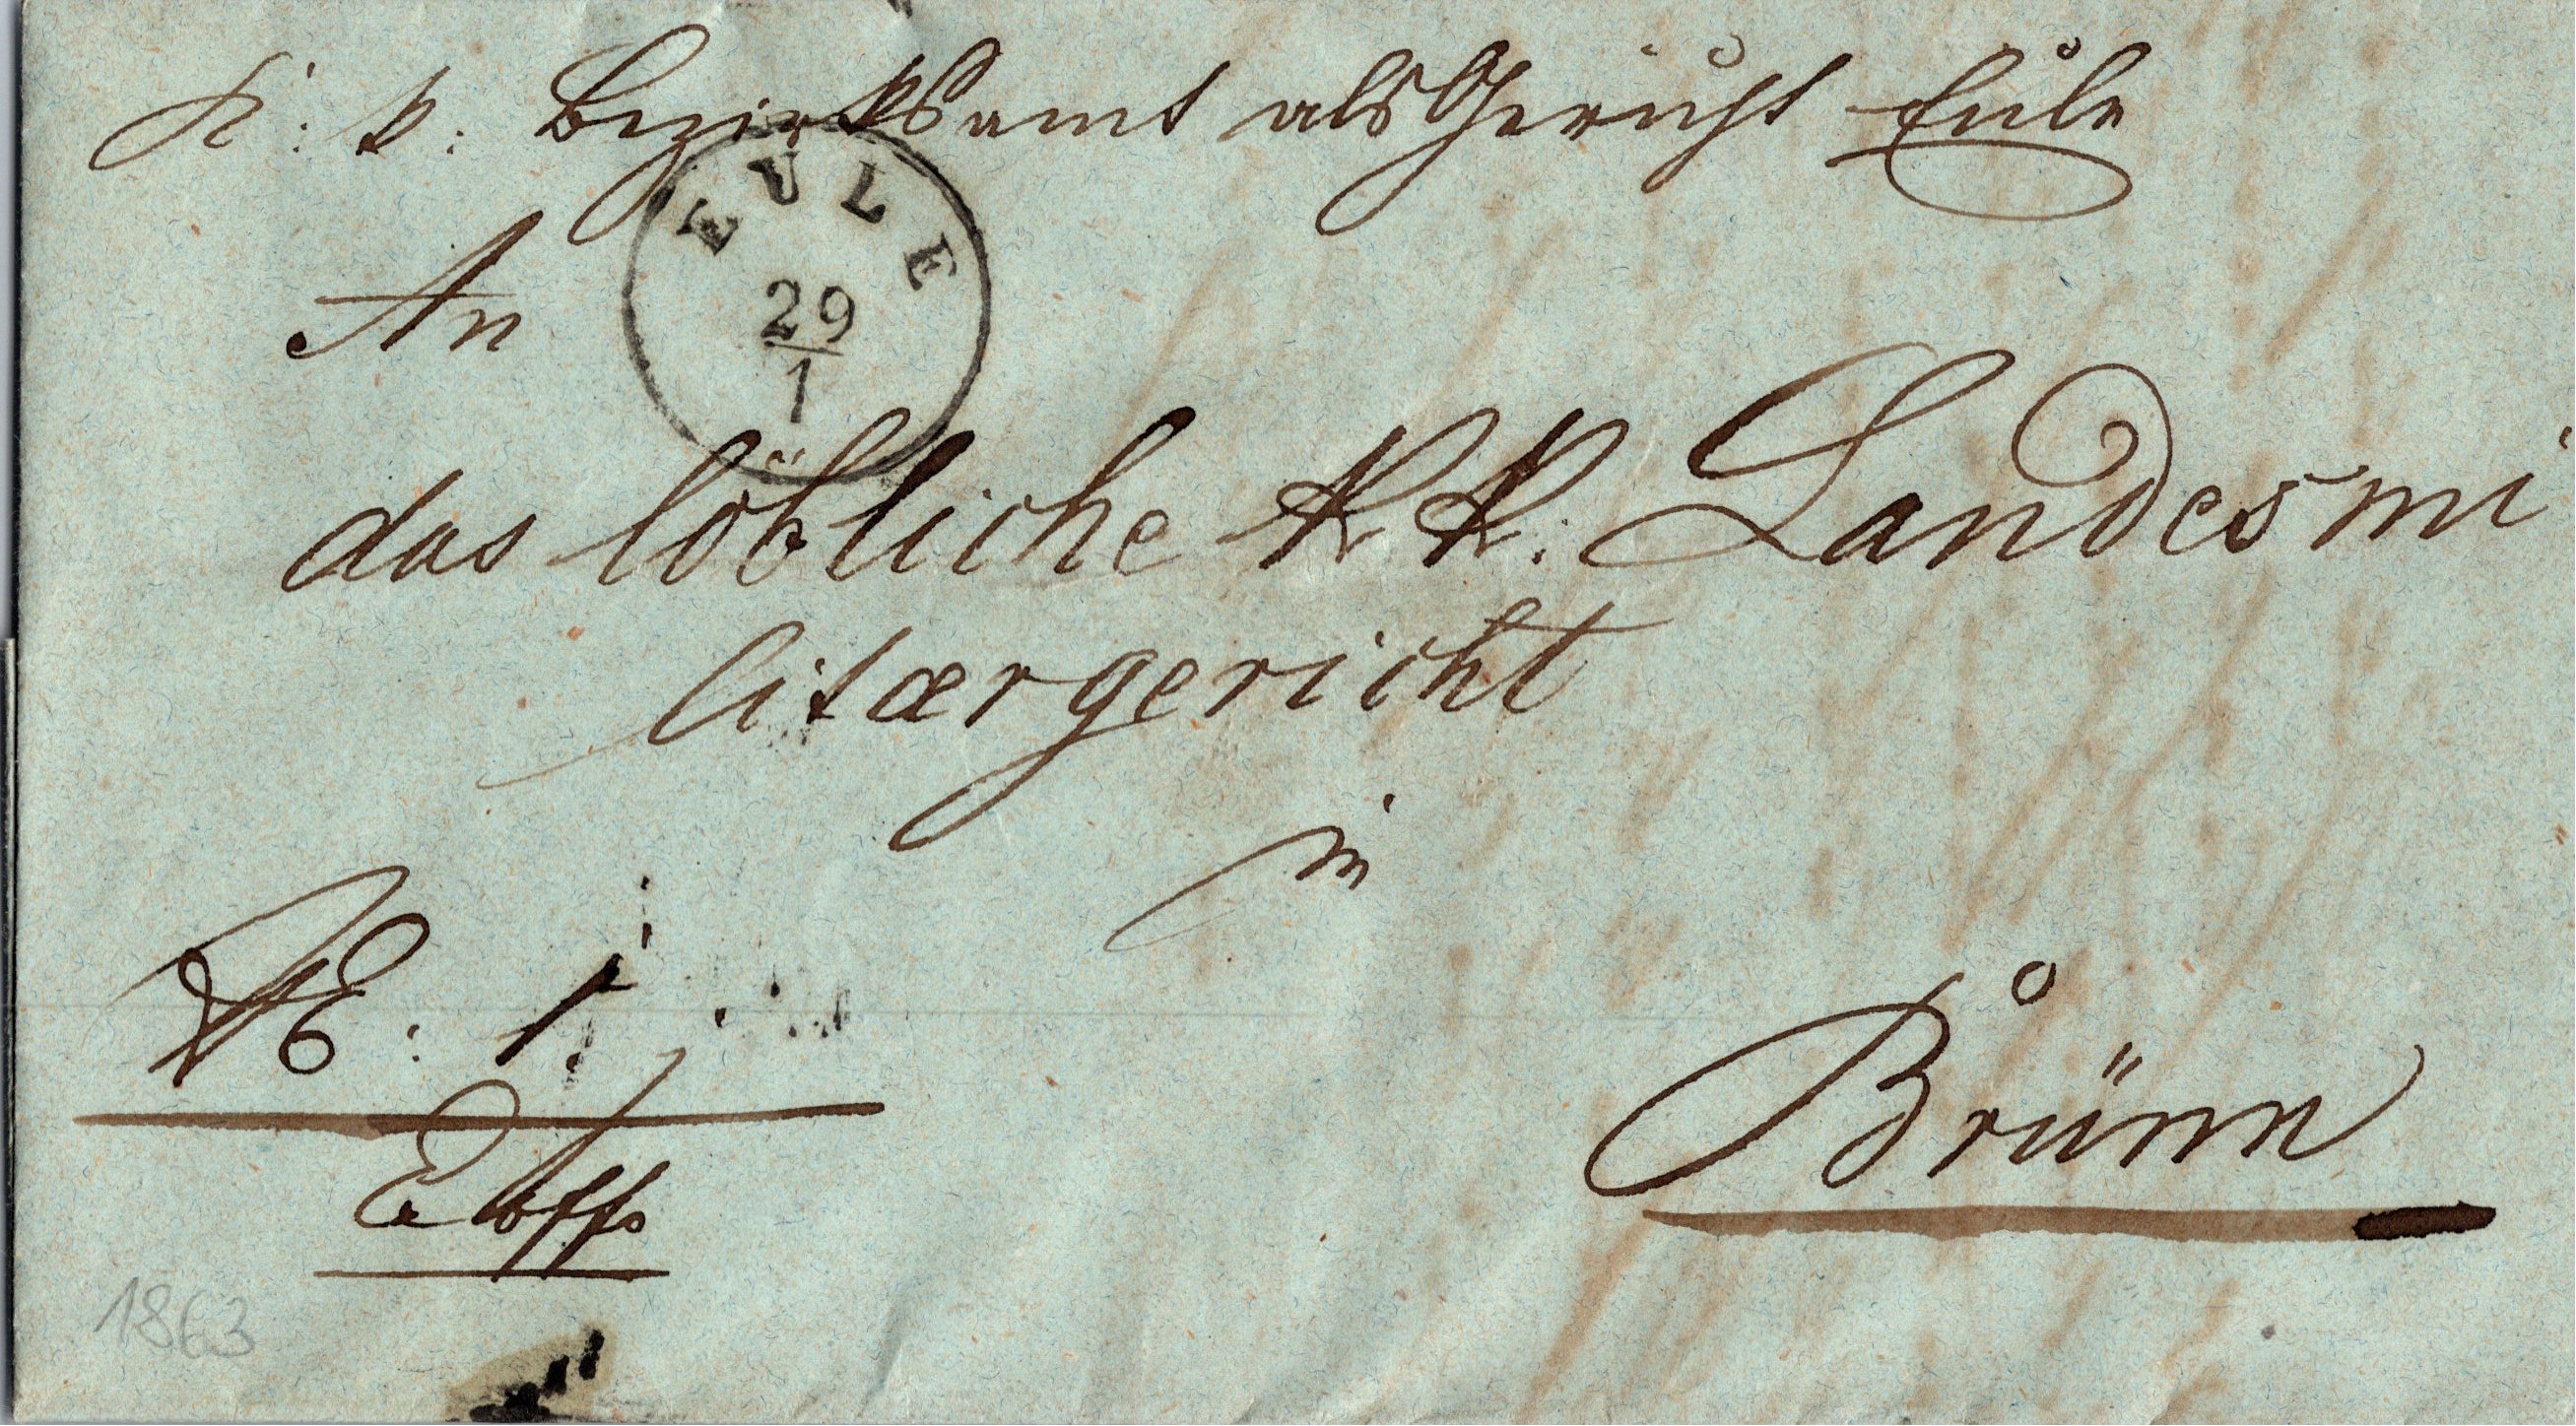 K: k: Bezirksamt als Gericht Eule
EULE
29
1
An
das löbliche KK: Landesmi
litærgericht
in
Brünn
E: 1.
1863